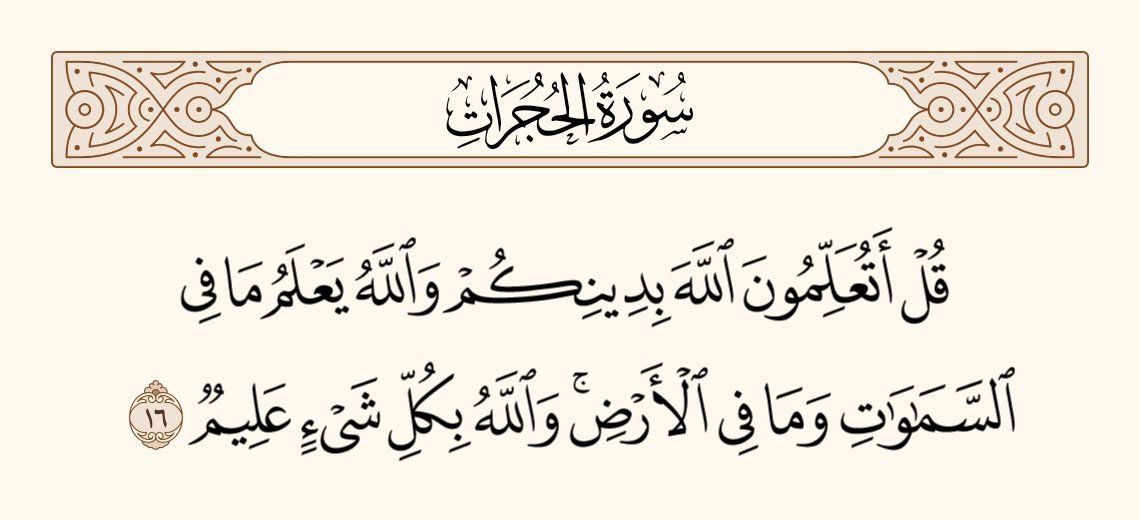 سُورَةُ الحُجُرَاتِ
قُلْ أَتُعَلِّمُونَ ٱللَّهَ بِدِينِكُمْ وَٱللَّهُ يَعْلَمُ مَا فِى
ٱلسَّمَـٰوَٰتِ وَمَا فِى ٱلْأَرْضِ ۚ وَٱللَّهُ بِكُلِّ شَىْءٍ عَلِيمٌ ١٦